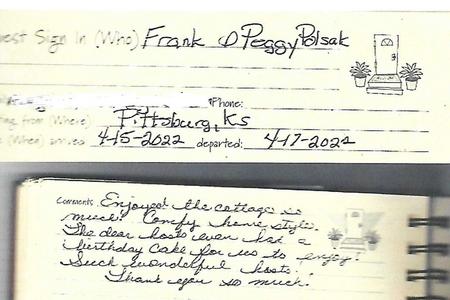 est Sign In (Who) Frank & Peggy Polsak
Phone:
ing from (Where) Pittsburg, Ks
(When) arrived 4-15-2022 departed: 4-17-2022
Comments Enjoyed the cottage so
much! Comfy home style.
The dear hosts even had a
birthday cake for us to enjoy!
Such wonderful hosts!
Thank you so much!